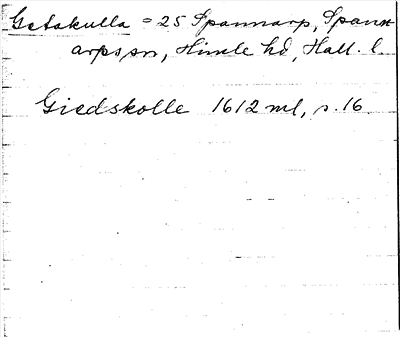 Getakulla = 25 Spannarp, Spann-
arps sn, Himle hd, Hall. l.
Giedskolle 1612 ml, s. 16